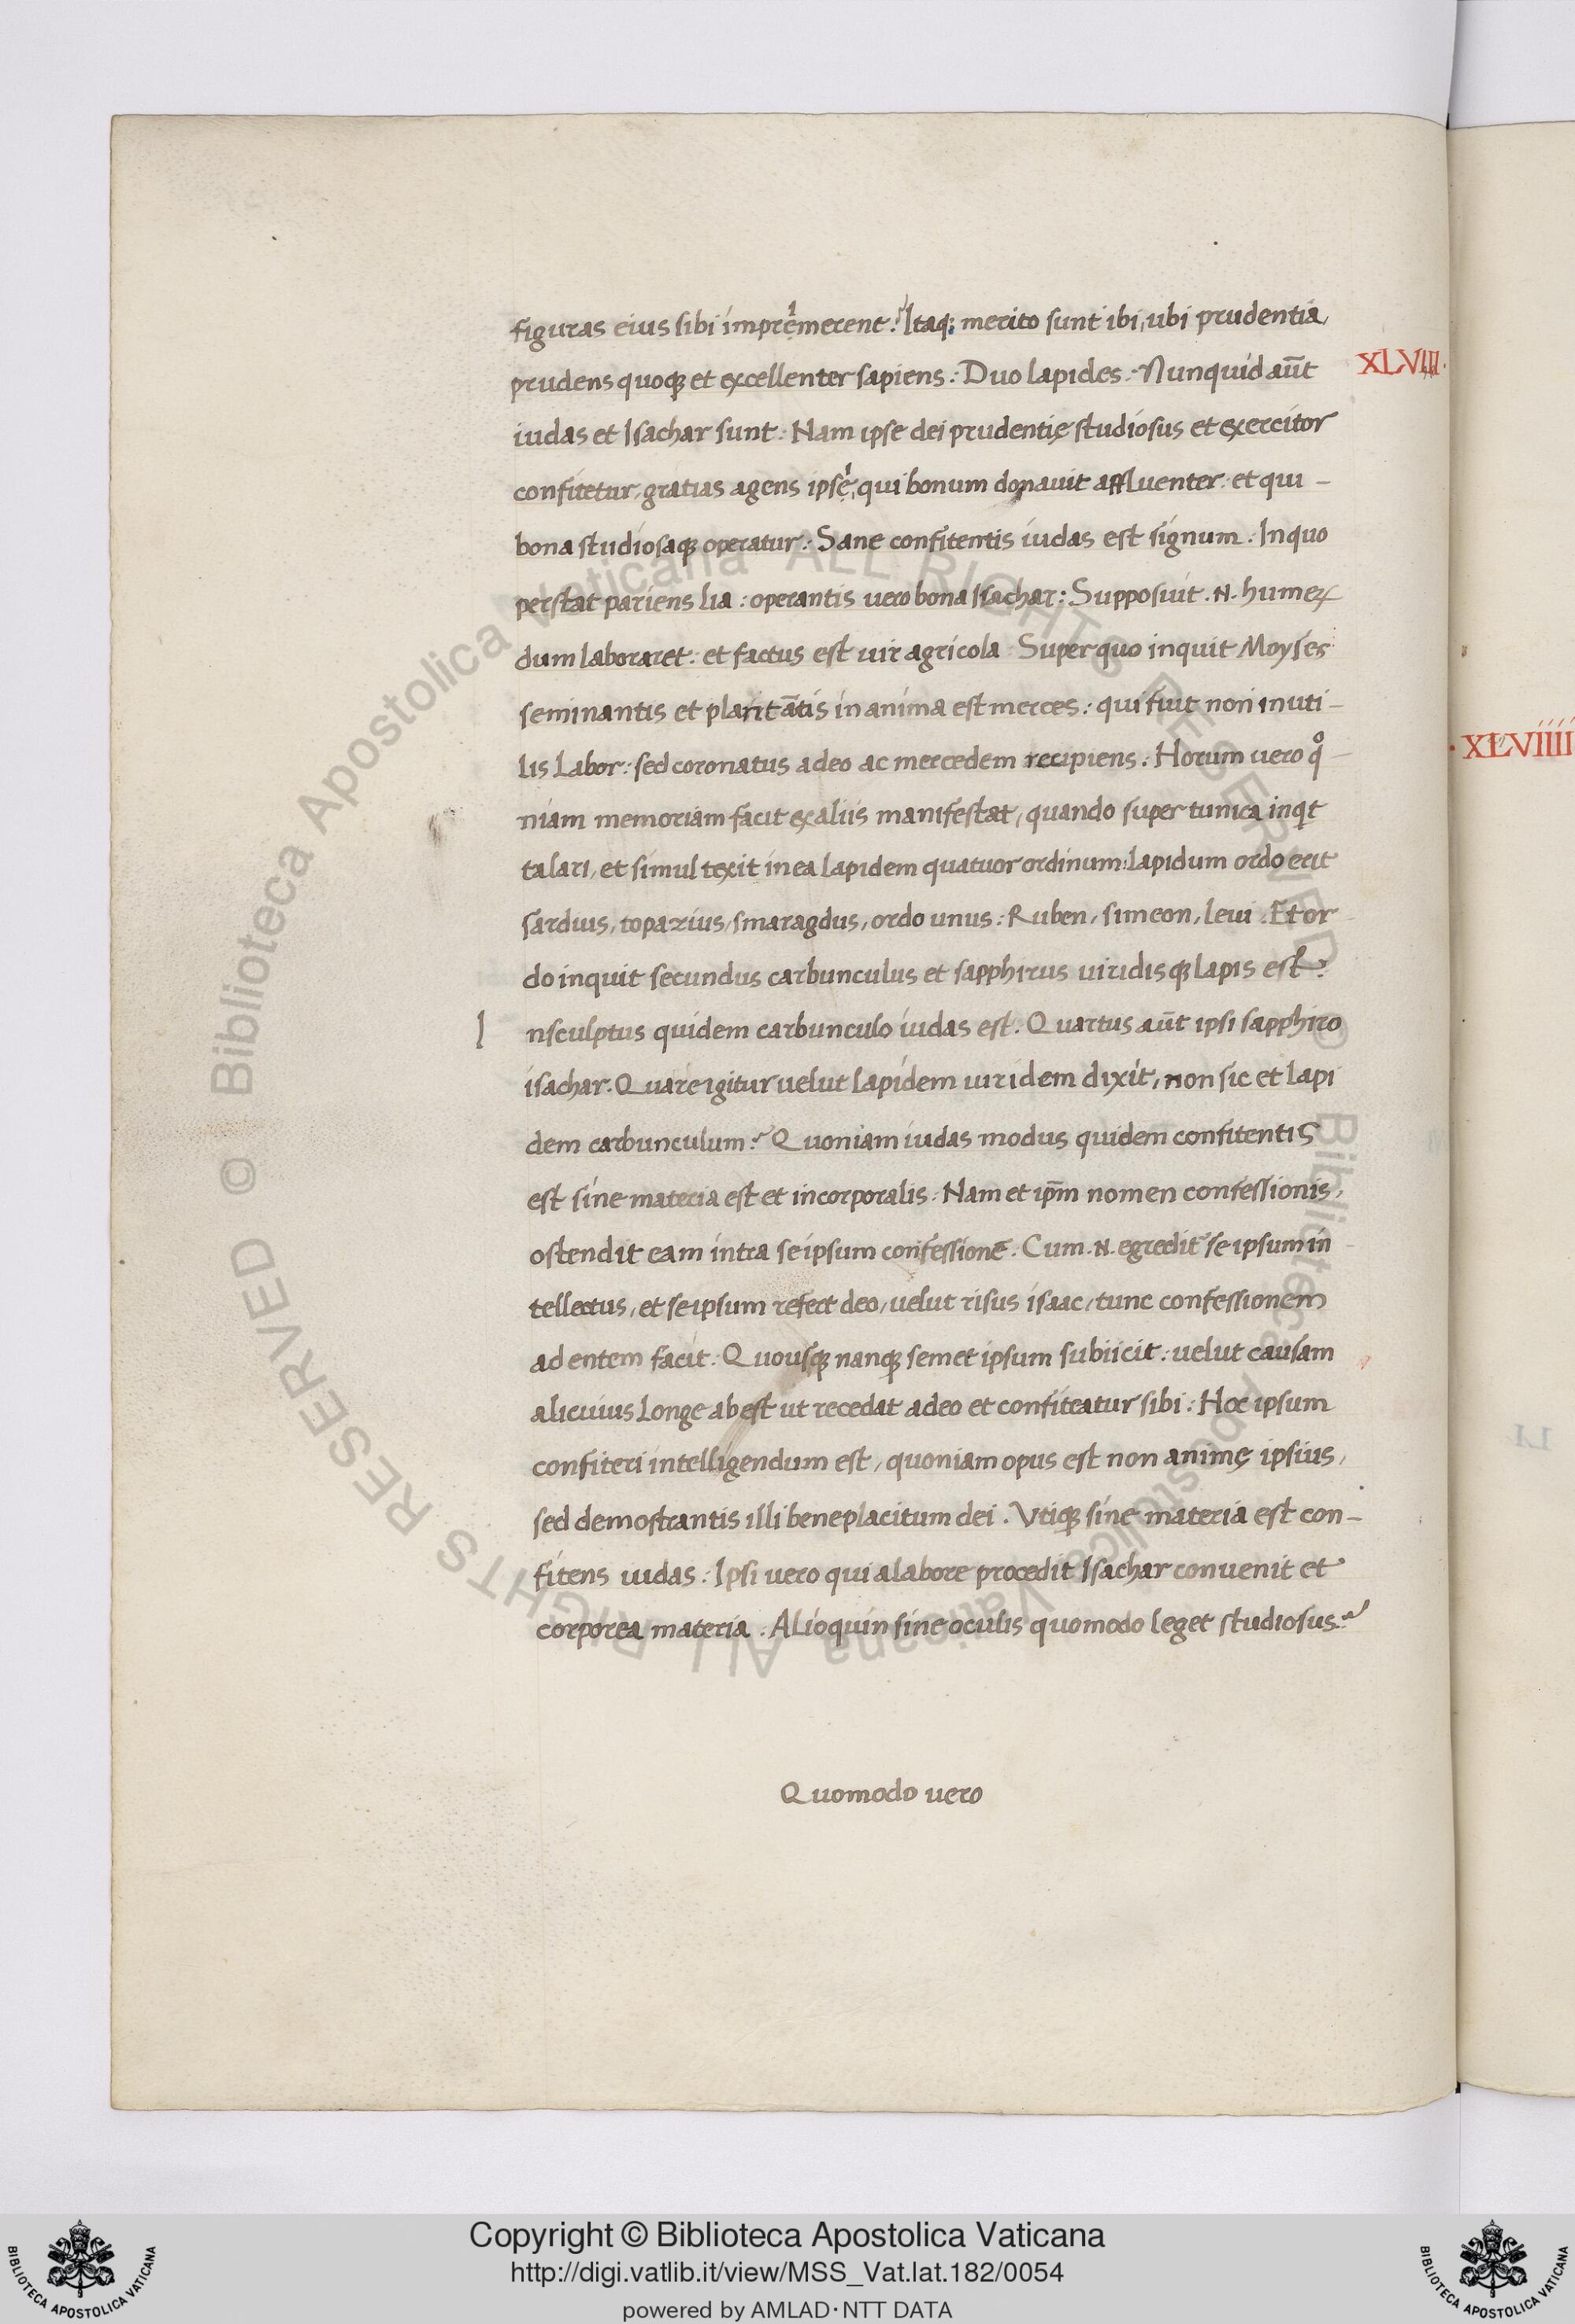 figuras eius sibi imprę̀merent? Itaq; merito sunt ibi, ubi prudentia,
prudens quoq; et excellenter sapiens: Duo lapides: Nunquid aūt
XLVIII.
iudas et Isachar sunt: Nam ipse dei prudentię studiosus et exercitor
confitetur, gratias agens ipsę, qui bonum donavit affluenter: et qui –
bona studiosaq; operatur: Sane confitentis iudas est signum: In quo
perstat pariens lia: operantis vero bona Isachar: Supposuit .N. humeꝝ
dum laboraret: et factus est uir agricola: Super quo inquit Moyses
seminantis et plantātis in anima est merces: qui fiut non inuti –
.XLVIIII
lis Labor: sed coronatus a deo ac mercedem recipiens: Horum uero qͦ
niam memoriam facit ex aliis manifestat, quando super tunica inqt
talari, et simul texit in ea lapidem quatuor ordinum: lapidum ordo erit
sardius, topazius, smaragdus, ordo unus: Ruben, simeon, leui. Et or
do inquit secundus carbunculus et sapphirus uiridisq; lapis est:
I nsculptus quidem carbunculo iudas est. Quartus aūt ipsi sapphiro
isachar. Quare igitur uelut lapidem uiridem dixit, non sic et lapi
dem carbunculum? Quoniam iudas modus quidem confitentis
est sine materia est et incorporalis: Nam et ipm̄ nomen confessionis,
ostendit eam intra seipsum confessionē: Cum .N. egredit᷑ se ipsum in
tellectus, et seipsum refert deo, uelut risus isaac, tunc confessionem
ad entem facit: Quousq; nanq; semet ipsum subiicit: uelut causam
alicuius longe abest ut recedat a deo et confiteatur sibi: Hoc ipsum
confiteri intelligendum est, quoniam opus est non animę ipsius,
sed demostrantis illi beneplacitum dei. Vtiq; sine materia est con –
fitens iudas: Ipsi uero qui a labore procedit Isachar conuenit et
corporea materia. Alioquin sine oculis quomodo leget studiosus?
Quomodo uero
Copyright © Biblioteca Apostolica Vaticana
http://digi.vatlib.it/view/MSS_Vat.lat.182/0054
powered by AMLAD·NTT DATA
BIBLIOTECA APOSTOLICA VATICANA
BIBLIOTECA APOSTOLICA VATICANA
© Biblioteca Apostolica Vaticana ALL RIGHTS RESERVED © Biblioteca Apostolica Vaticana ALL RIGHTS RESERVED